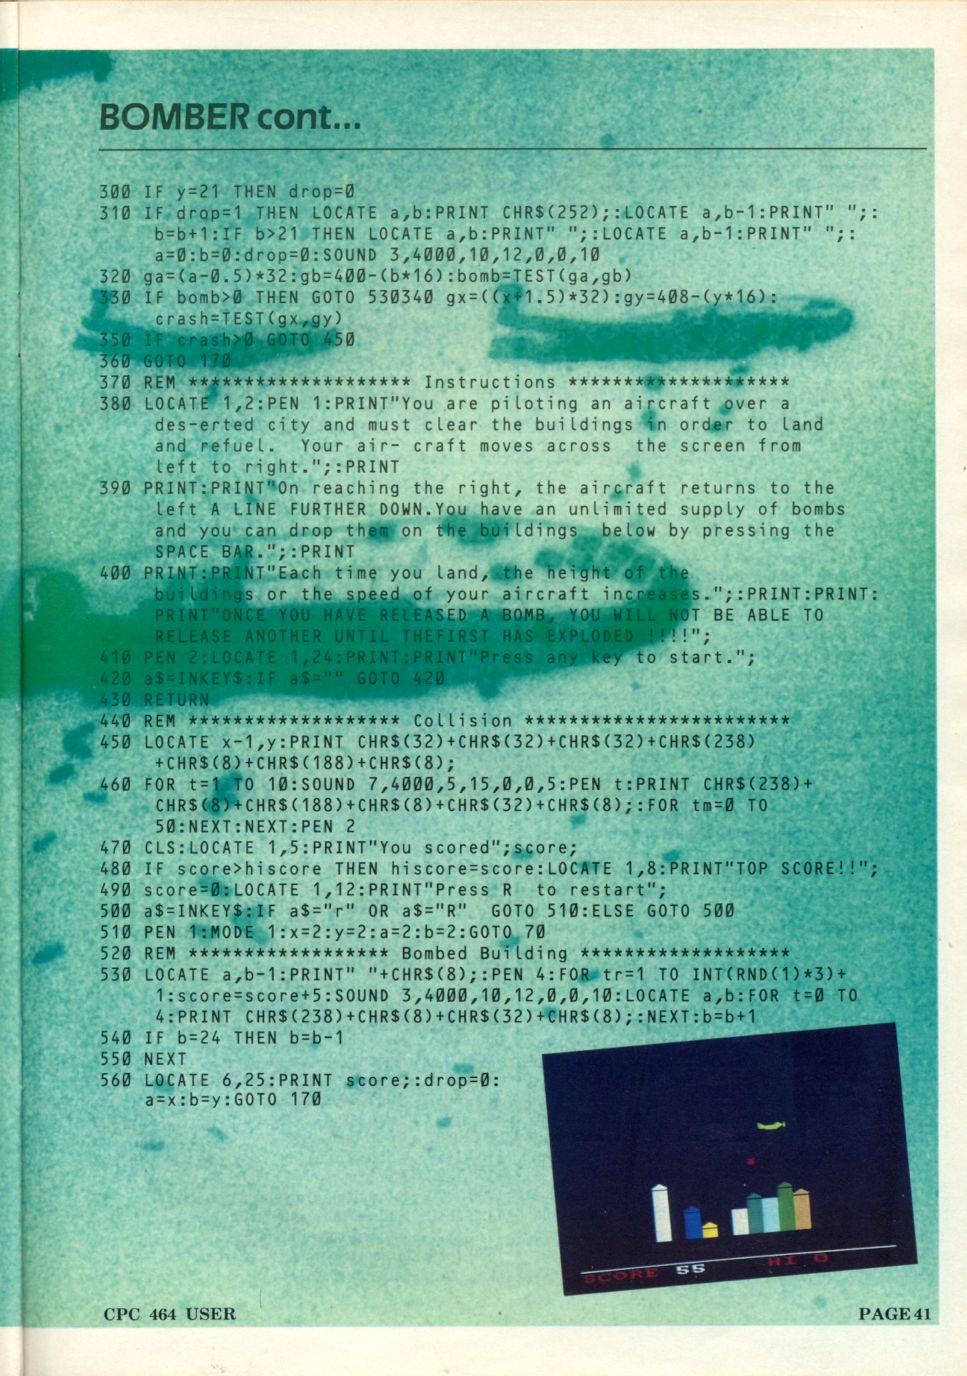 BOMBER cont...
300 IF y=21 THEN drop=0
310 IF drop=1 THEN LOCATE a,b:PRINT CHR$(252);:LOCATE a,b-1:PRINT" ";:
b=b+1:IF b>21 THEN LOCATE a,b:PRINT" ";:LOCATE a,b-1:PRINT" ";:
a=0:b=0:drop=0:SOUND 3,4000,10,12,0,0,10
320 ga=(a-0.5)*32:gb=400-(b*16):bomb=TEST(ga,gb)
330 IF bomb>0 THEN GOTO 530340 gx=((x+1.5)*32):gy=408-(y*16):
crash=TEST(gx,gy)
350 IF crash>0 GOTO 450
360 GOTO 170
370 REM ******************** Instructions ********************
380 LOCATE 1,2:PEN 1:PRINT"You are piloting an aircraft over a
des-erted city and must clear the buildings in order to land
and refuel.  Your air- craft moves across  the screen from
left to right.";:PRINT
390 PRINT:PRINT"On reaching the right, the aircraft returns to the
left A LINE FURTHER DOWN.You have an unlimited supply of bombs
and you can drop them on the buildings  below by pressing the
SPACE BAR.";:PRINT
400 PRINT:PRINT"Each time you land, the height of the
buildings or the speed of your aircraft increases.";:PRINT:PRINT:
PRINT"ONCE YOU HAVE RELEASED A BOMB, YOU WILL NOT BE ABLE TO
RELEASE ANOTHER UNTIL THEFIRST HAS EXPLODED !!!!";
410 PEN 2:LOCATE 1,24:PRINT:PRINT"Press any key to start.";
420 a$=INKEY$:IF a$="" GOTO 420
430 RETURN
440 REM ******************* Collision ************************
450 LOCATE x-1,y:PRINT CHR$(32)+CHR$(32)+CHR$(32)+CHR$(238)
+CHR$(8)+CHR$(188)+CHR$(8);
460 FOR t=1 TO 10:SOUND 7,4000,5,15,0,0,5:PEN t:PRINT CHR$(238)+
CHR$(8)+CHR$(188)+CHR$(8)+CHR$(32)+CHR$(8);:FOR tm=0 TO
50:NEXT:NEXT:PEN 2
470 CLS:LOCATE 1,5:PRINT"You scored";score;
480 IF score>hiscore THEN hiscore=score:LOCATE 1,8:PRINT"TOP SCORE!!";
490 score=0:LOCATE 1,12:PRINT"Press R  to restart";
500 a$=INKEY$:IF a$="r" OR a$="R"  GOTO 510:ELSE GOTO 500
510 PEN 1:MODE 1:x=2:y=2:a=2:b=2:GOTO 70
520 REM ****************** Bombed Building *******************
530 LOCATE a,b-1:PRINT" "+CHR$(8);:PEN 4:FOR tr=1 TO INT(RND(1)*3)+
1:score=score+5:SOUND 3,4000,10,12,0,0,10:LOCATE a,b:FOR t=0 TO
4:PRINT CHR$(238)+CHR$(8)+CHR$(32)+CHR$(8);:NEXT:b=b+1
540 IF b=24 THEN b=b-1
550 NEXT
560 LOCATE 6,25:PRINT score;:drop=0:
a=x:b=y:GOTO 170
SCORE 55 HI 0
CPC 464 USER PAGE 41